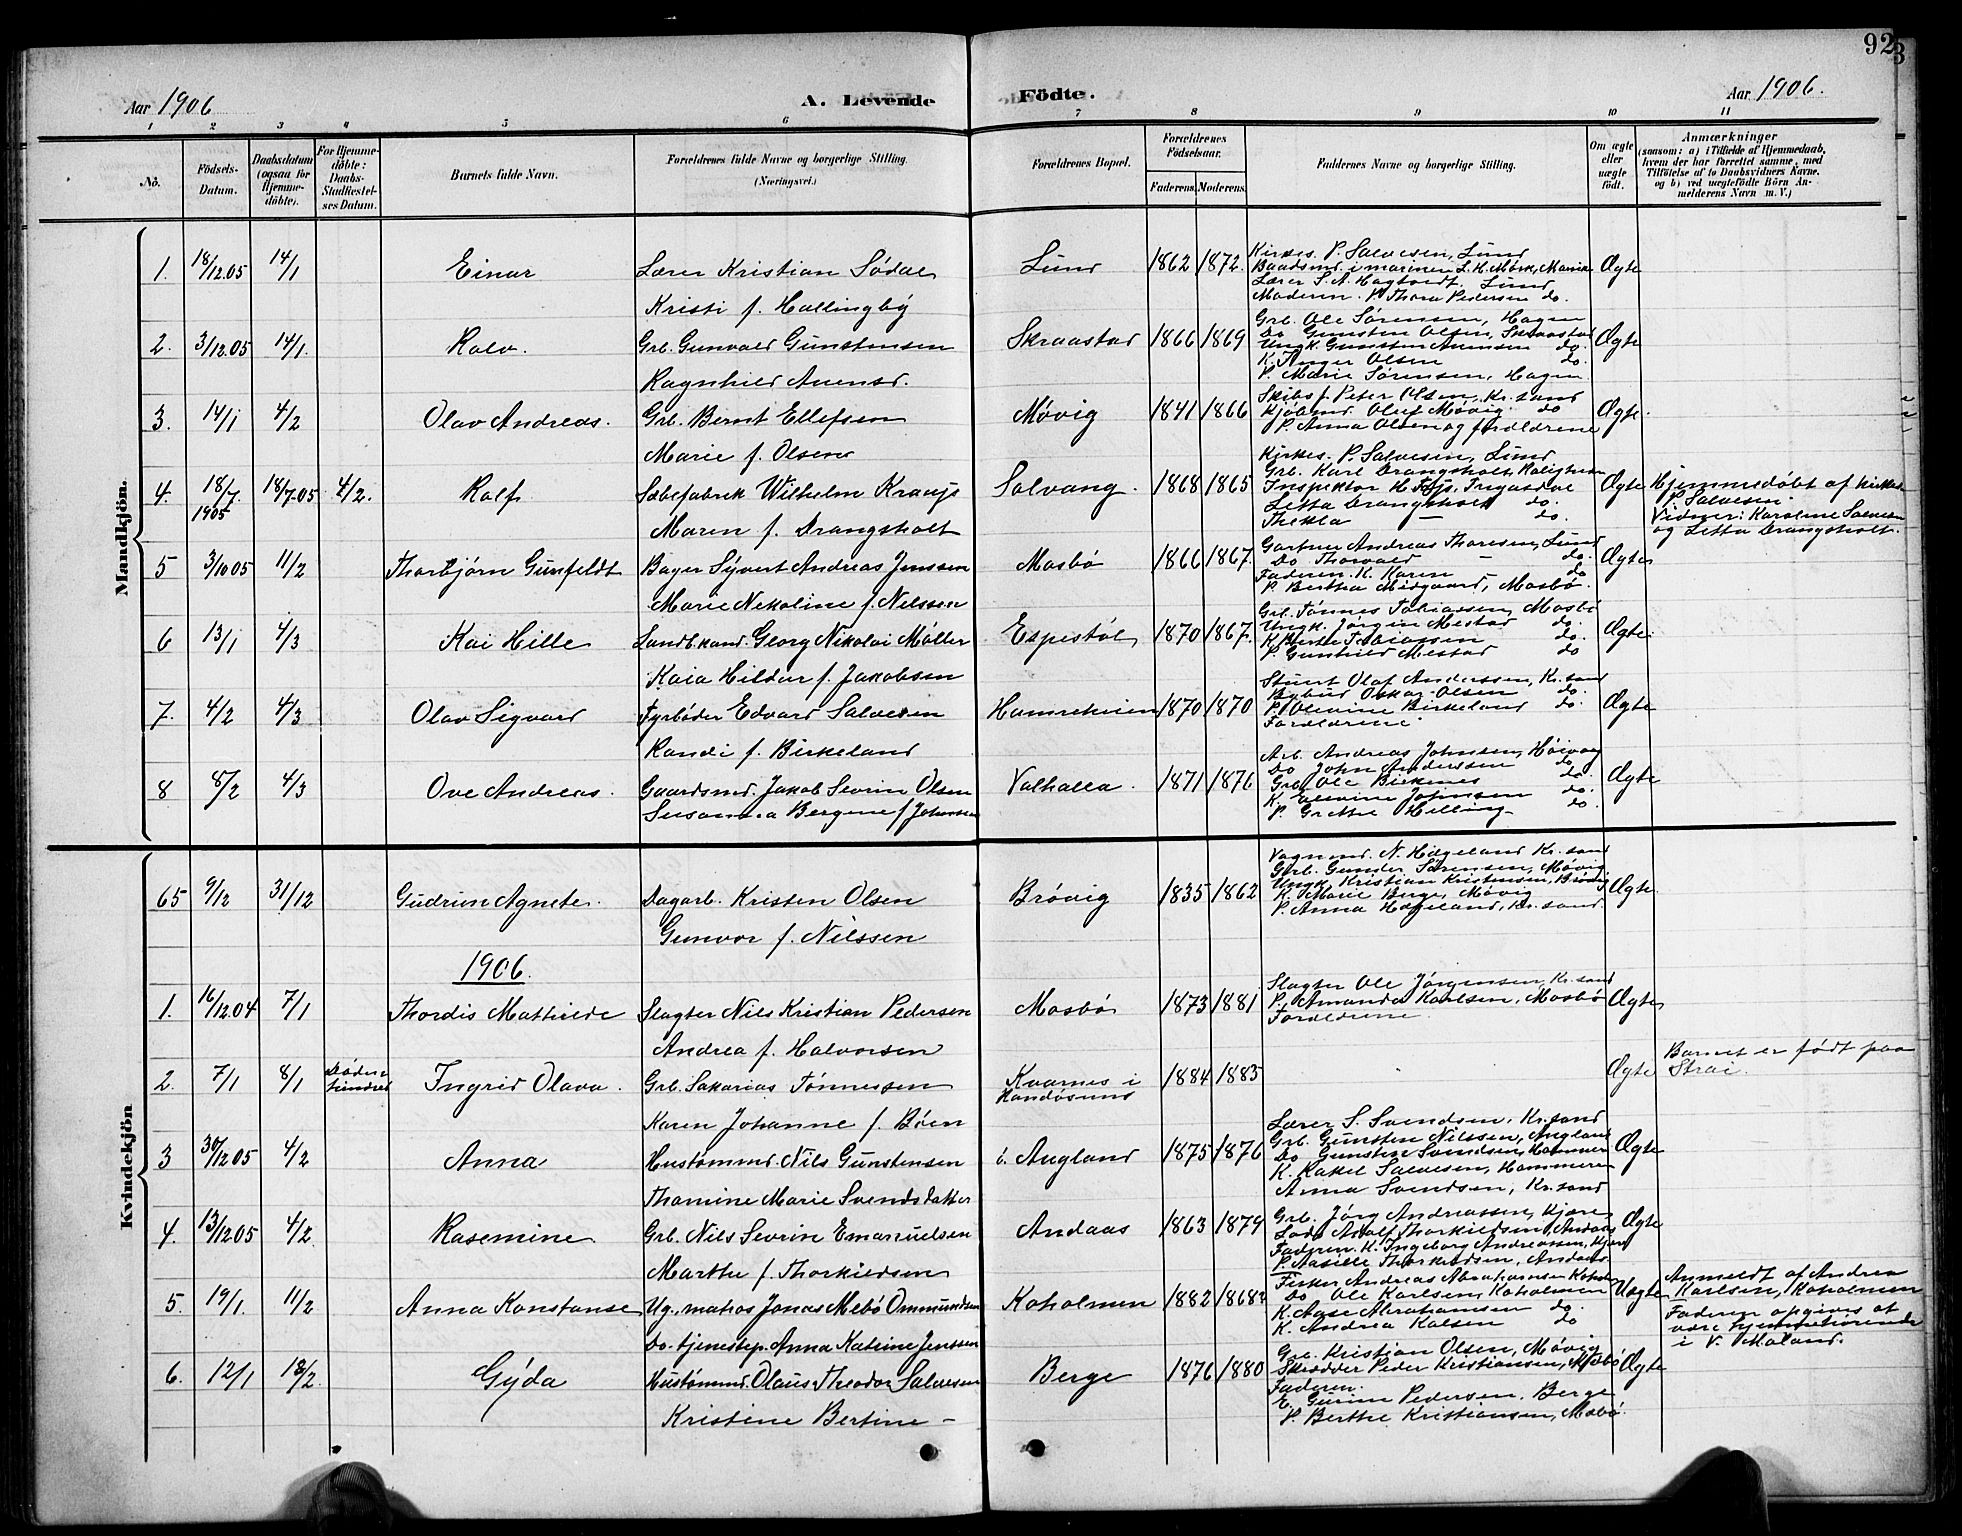 92
3
Aar 1906
A. Levende
Födte.
Aar 1906.
1 2 3 4 5 6 7 8 9 10 11
No.
Födsels-Datum.
Daabsdatum (ogsaa for Hjemme-döbte).
For Hjemme-döbte: Daabs-Stadfæstel-ses Datum.
Barnets fulde Navn.
Forældrenes fulde Navne og borgerlige Stilling.
(Næringsvei.)
Forældrenes Bopæl.
Forældrenes Födselsaar.
Faderens. Moderens.
Faddernes Navne og borgerlige Stilling.
Om ægte eller uægte födt.
Anmærkninger
(saasom: a) i Tilfælde af Hjemmedaab,
hvem der har forrettet samme, med
Tilföielse af to Daabsvidners Navne.
og b) ved uægtefödte Börn An-
melderens Navn m. V.)
Mandkjön.
1. 18/12.05 14/1 Einar Lærer Kristian Södal Lund 1862 1872. Ægte
Kristi f. Hallingby
Kirkes. P. Salvesen, Lund
Baadsmd. i marinen L. H. Mørk, Marvika
Lærer S. A. Hagtvedt. Lund
Moderen. P. Thora Pedersen do.
2. 3/12.05 14/1. Rolv. Grb. Gunvald Gunstensen Skraastad 1866 1869 Ægte
Ragnhild Anensd.
Grb. Ole Sørensen, Hagen
Do Gunsten Olsen, Skraastad
Ungk. Gunsten Anensen do.
K. Inger Olsen do
P. Marie Sørensen, Hagen
3. 14/1 4/2 Olav Andreas. Grb. Bernt Ellefsen Møvig 1841 1866 Ægte.
Marie f. Olsen
Skibsf. Peter Olsen, Kr.sand
Kjöbmd. Oluf Møvig do
P. Anna Olsen og forældrene
4. 18/7. 1905 18/7.05 4/2. Rolf Sæbefabrik Wilhelm Salvang. 1868 1865 Ægte
Maren f. Drangsholt
Kirkes. P. Salvesen, Lund
Grb. Karl Drangsholt
Inspektor
Letta Drangsholt do.
Thekla — do.
Hjemmedöbt af kirkes.
P. Salvesen.
Vidner: Karoline Salvesen
og Letta Drangsholt.
5 3/10 05 11/2 Thorbjørn Gunfeldt Bager Syvert Andreas Jenssen Mosbø 1866 1867. Ægte
Marie Nekoline f. Nilssen
Gartner Andreas Thoresen, Lund
Do Thorvald — do.
Faderen. K. Karen — do
P. Berthe Midgaard, Mosbø.
6 13/1 4/3 Kai Hille Landb.kand. Georg Nikolai Møller Espestøl 1870 1867. Ægte
Kaia Hildur f. Jakobsen
Grb. Tønnes Tobiassen, Mosbø
Ungk. Jörgen Mestad do.
K. Tobiassen do.
P. Gunhild Mestad do
7. 4/2 4/3 Olav Sigvard Fyrbøder Edvard Salvesen Hamreheien 1870 1870 Ægte
Randi f. Birkeland
Stuert Olaf Anderssen, Kr.sand
Bybud Oskar Olsen do.
P. Olevine Birkeland do.
Forældrene.
8 8/2 4/3 Ove Andreas. Gaardsmd. Jakob Sevrin Olsen Valhalla. 1871 1876 Ægte
Susanna Bergine f. Johnsen
Arb. Andreas Johnsen, Høivaag
Do John Anderssen do
Grb. Ole Birkenes do.
K. Olevine Johnsen do.
P. Grethe Helling do.
Kvindekjön
65 9/12 31/12 Gudrun Agnete. Dagarb. Kristen Olsen Brøvig 1835 1862 Ægte.
Gunvor f. Nilssen
Vognmd. N. Hægeland Kr.sand
Grb. Gunder Sørensen, Møvig
Ungk. Kristian Kristensen, Brøvig
K. Marie Berge, Møvig
P. Anna Hægeland, Kr.sand.
1906.
1. 16/12.04 7/1 Thordis Mathilde Slagter Nils Kristian Pedersen Mosbø 1873 1881 Ægte
Andrea f. Halvorsen
Slagter Ole Jörgensen, Kr.sand
P. Amanda Karlsen, Mosbø
Forældrene
2. 7/1 8/1 Ingrid Olava. Grb. Sakarias Tønnessen Kvarnes i 1884 1883 Ægte
Randøsund
Karen Johanne f. Böen
Barnet er födt paa
Strai.
3 30/12 05 4/2 Anna Hustømmd. Nils Gunstensen Augland 1875 1876 Ægte
Thomine Marie Svendsdatter
Lærer S. Svendsen, Kr.sand
Grb. Gunsten Nilssen, Augland
Do Gunsten Svendsen, Hammeren
K. Rakel Salvesen, Hammeren
Anna Svendsen, Kr.sand
4. 13/12 05 4/2 Rasemine Grb. Nils Sevrin Emanuelsen Andaas 1863 1879 Ægte
Marthe f. Thorkildsen
Grb. Jörg Andreassen, Kjære
Lods Adolf Thorkildsen, Andaas
Faderen. K. Ingeborg Andreassen, Kjære
P. Thorkildsen, Andaas
5. 19/1. 11/2 Anna Konstanse Ug. matros Jonas Mebø Ommundsen Koholmen 1882 1868? Uægte
Do. tjenestep. Anna Katrine Jenssen
Fisker Andreas Abrahamsen Koholm
Do Ole Karlsen, Koholmen
K. Aase Abrahamsen do.
K. Andrea Kalsen do
Anmeldt af Andrea
Karlsen, Koholmen
Faderen opgives at
være hjemmehørende
i V. Moland.
6. 12/1 18/2. Gyda Hustømmd. Olaus Theodor Salvesen Berge 1876 1880 Ægte
Kristine Bertine —
Grb. Kristian Olsen, Møvig
Skrædder Peder Kristiansen, Mosbø
Faderen.
E. Gurine Pedersen, Berge
P. Berthe Kristiansen, Mosbø.